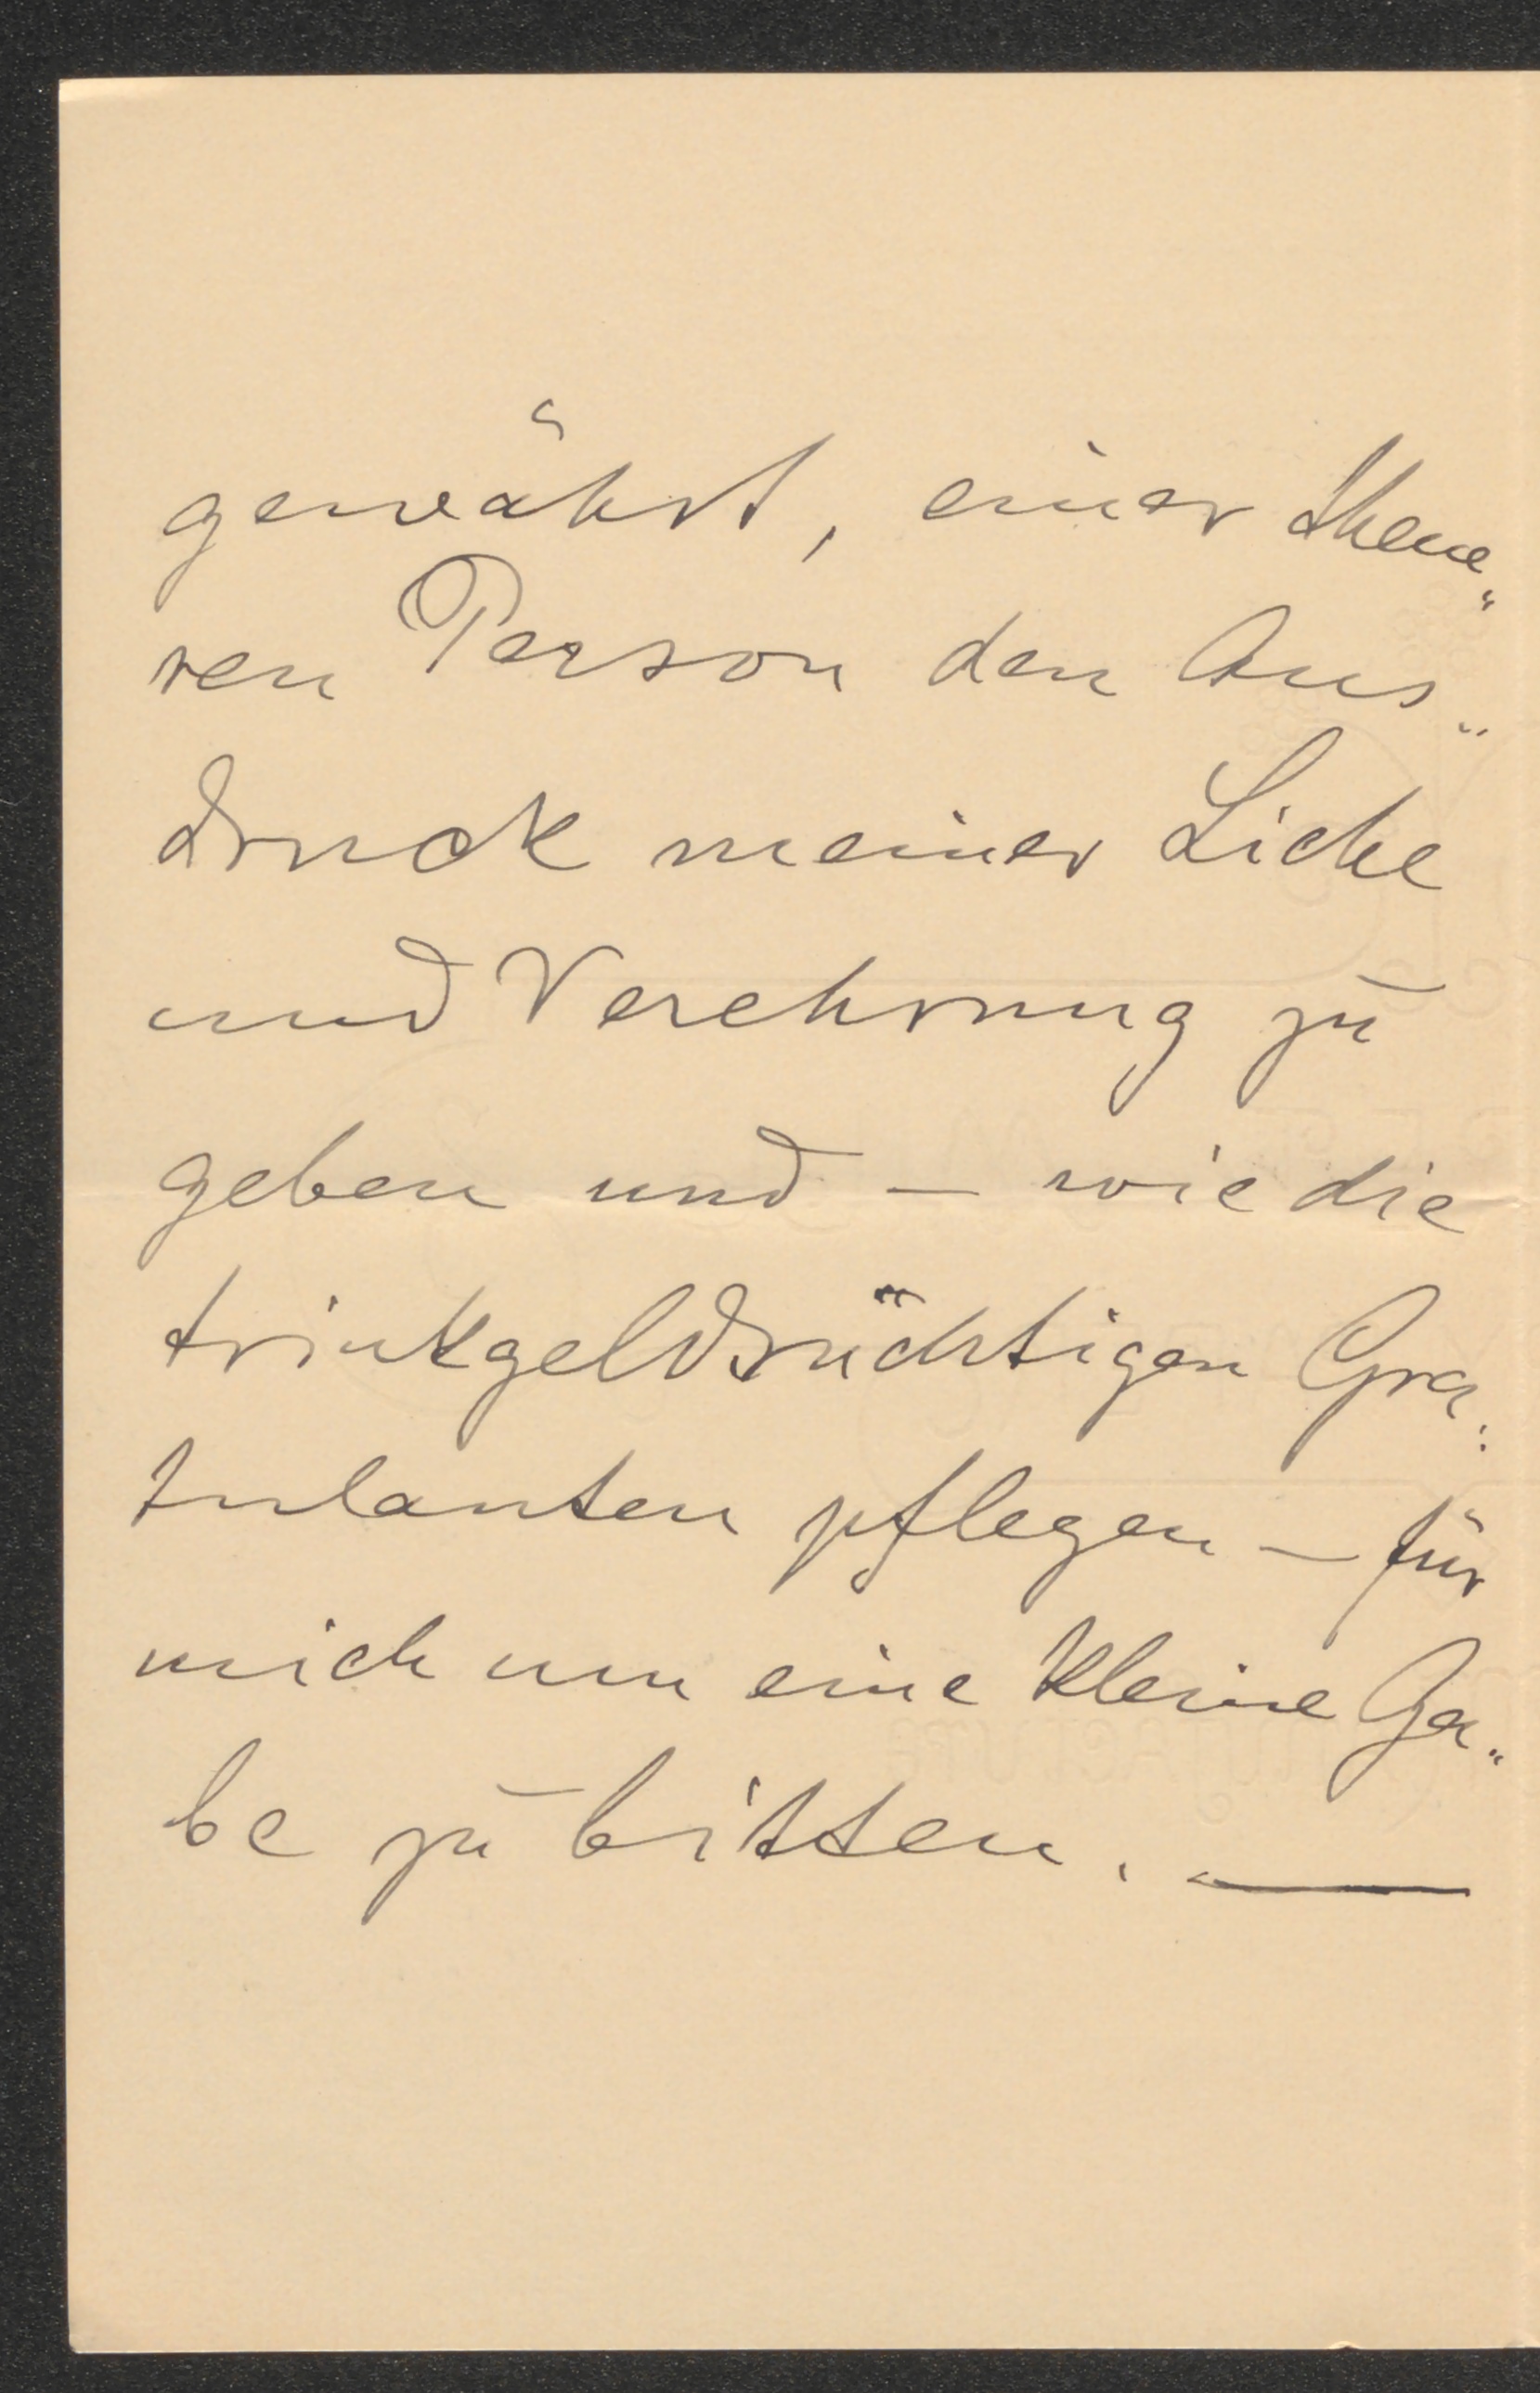 gewährt, einer theue„
ren Person den Aus„
druck meiner Liebe
und Verehrung zu
geben und – wie die
trinkgeldsüchtigen Gra:
tulanten pflegen – für
mich um eine kleine Ga„
be zu bitten. —